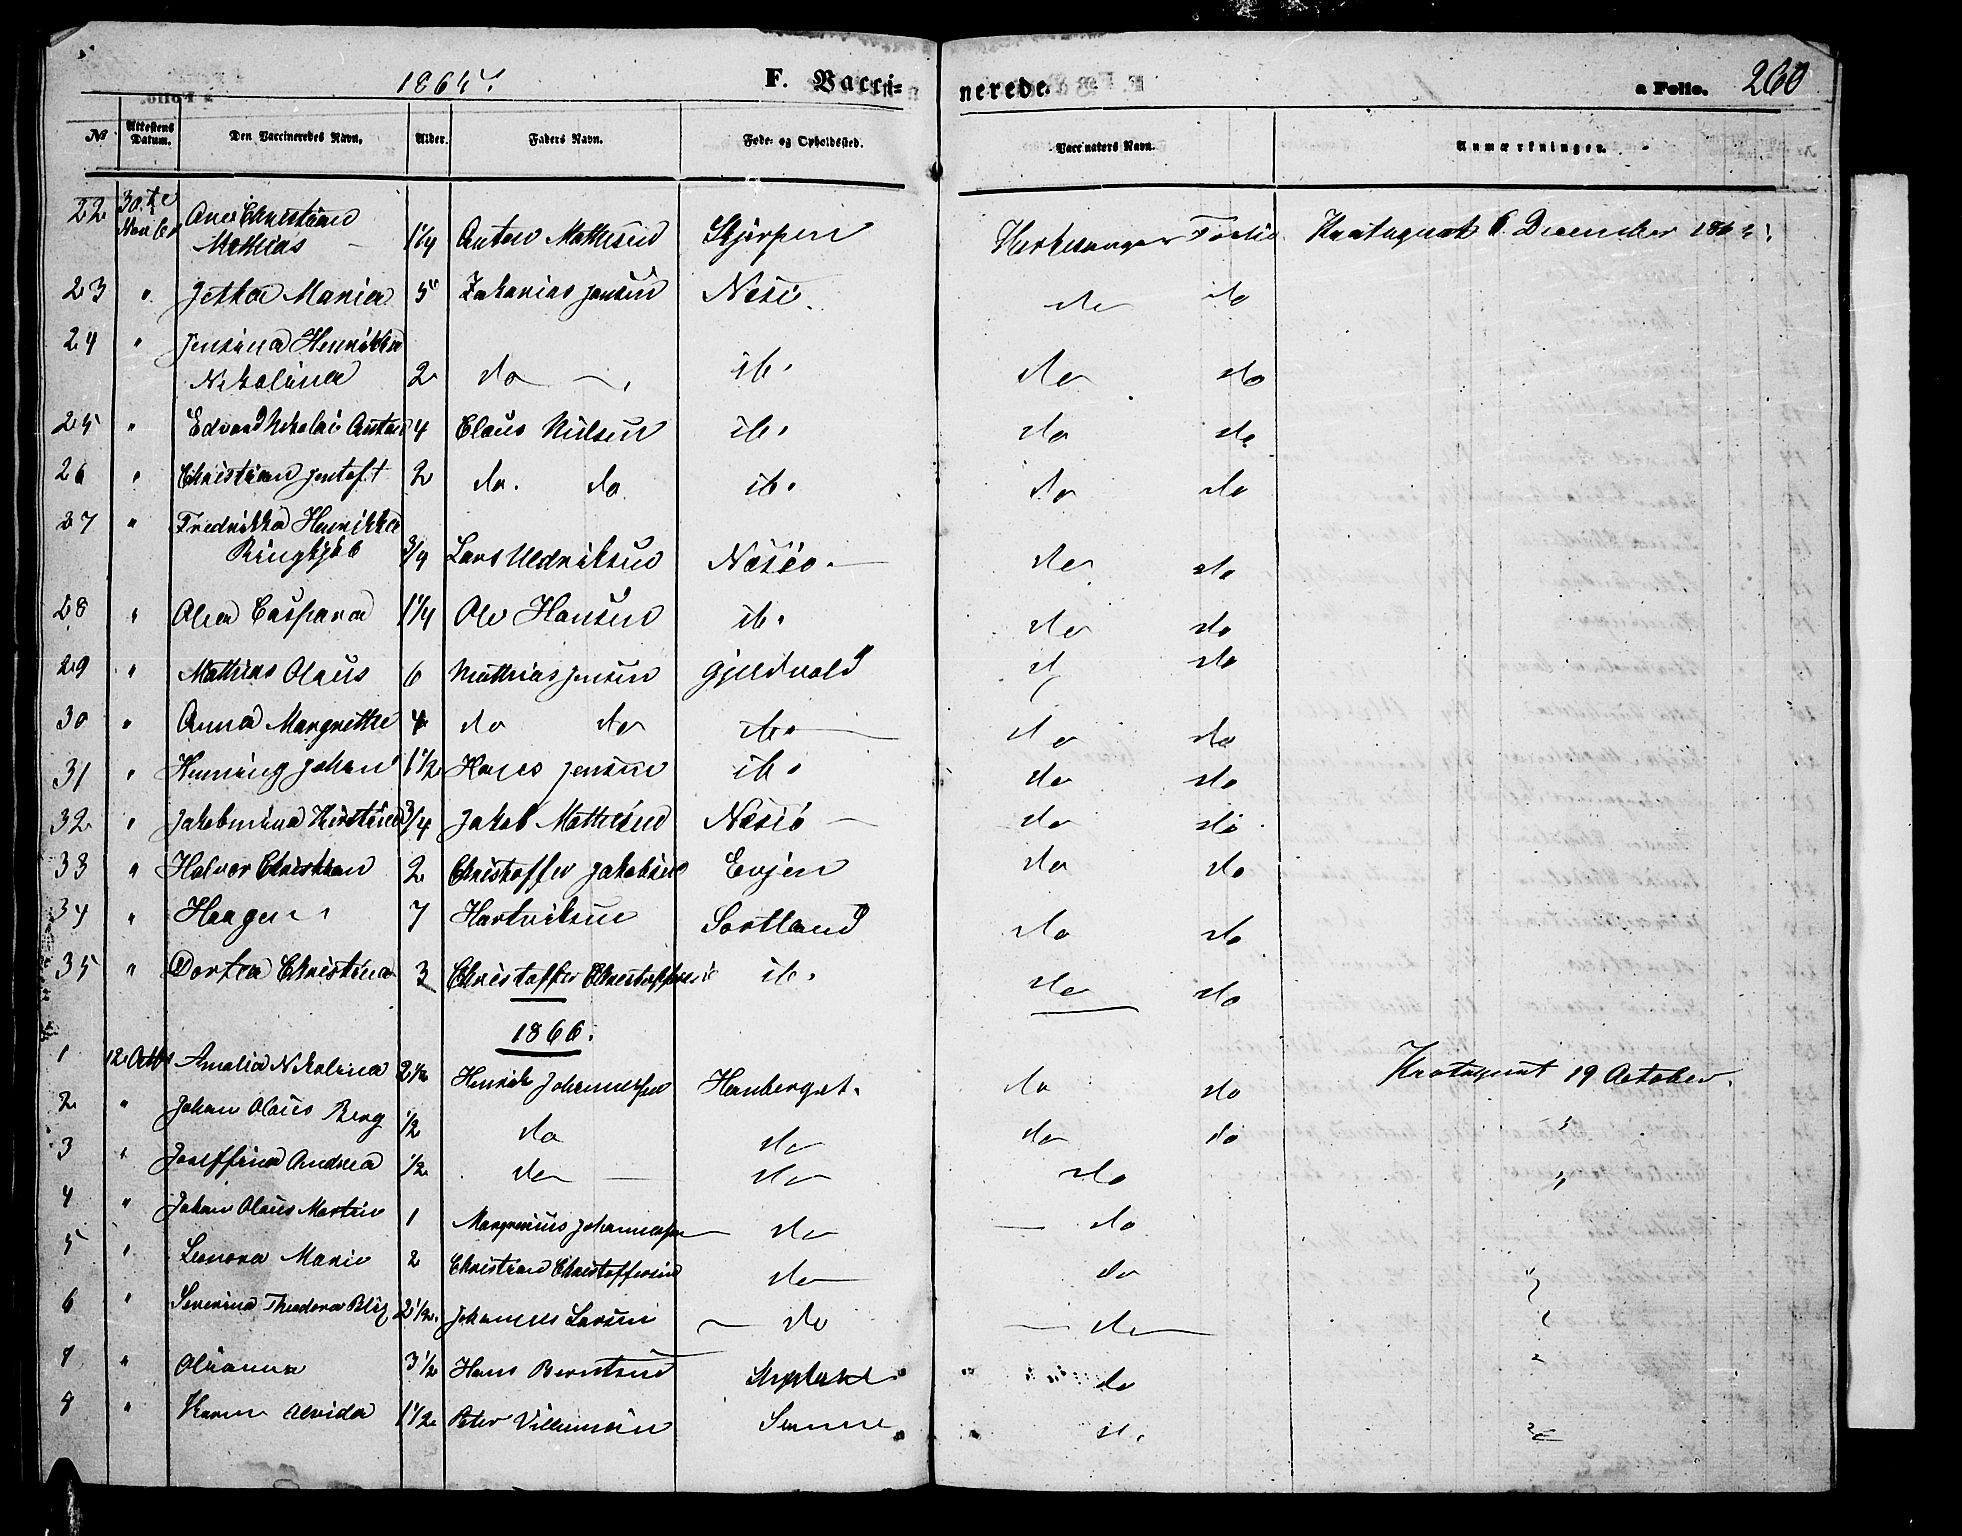 1865.
F. Vacci-
nerede.
a Folio. 260
No
Attestens Datum.
Den Vaccineredes Navn.
Alder.
Faders Navn.
Føde- og Opholdssted.
Vaccinators Navn.
Anmærkninger.
22 30.te Christian
Mathias 1 1/4 Anton Mathisen Skjerpen 6 December
23 " Jetta Maria 5 Zakarias Jensen Nesö do do
24 " Jensina Henrikka
Nikolina 2 do ib. do do
25 " Edvard Nikolai Anton 4 Claus Nilsen ib. do do
26 " Christian Jentoft 2 do. do ib. do do
27 " Fredrikka Henrikka
3/4 Lars Uldriksen Nesöe. do do
28 " Olea Caspara 1 1/4 Ole Hansen ib. do do
29 " Mathias Olaus 6 Mathias Jensen Gjeldvold d do
30 " Anna Margrethe 4 do do ib. do do
31 " Henning Johan 1 1/2 Hans Jensen ib. do do
32 " Jakobmina Kirstina 3/4 Jakob Mathisen Nesiö do do
33 " Halvor Christian 2 Christoffer Jakobsen Evjen do do
34 " Haagen 7 Hartviksen Sortland do do
35 " Dortea Christina 3 Christoffer Christoffersen ib. do do
1866.
1 12 Octbr Amalia Nikolina 2 1/2 Henrik Johannessen do do 19 October.
2 " Johan Olaus Berg 1/2 do do do do "
3 " Joseffina Andrea 1/2 do do do "
4 " Johan Olaus Martin 1 Johannessen do do
5 " Leonora Marie 2 Christian Christoffersen do do "
6 " Severina Theodora 2 1/2 Johannes Larsen do do "
7 " Olianna 3 1/2 Hans Berntsen do "
8 " Karen Alvida 1 1/2 Peter Villumsen d. "